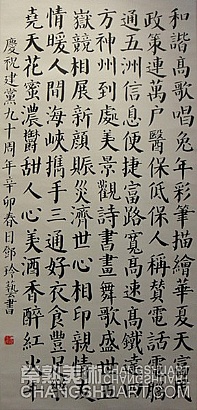 和諧高歌唱兔年彩筆描繪華夏天富
政策連萬戶醫保低保人稱贊電話電
通五洲信息便捷富路寬高速高鐵
方神州到處美景觀詩書畫舞歌盛世五
嶽競相展新顏賑災濟世心相印親情
情暖人間海峽攜手三通好衣食豐足
堯天花蜜濃鬱甜人心美酒香醉紅火
慶祝建黨九十周年辛卯春日鄧玲藝書
常熟美術